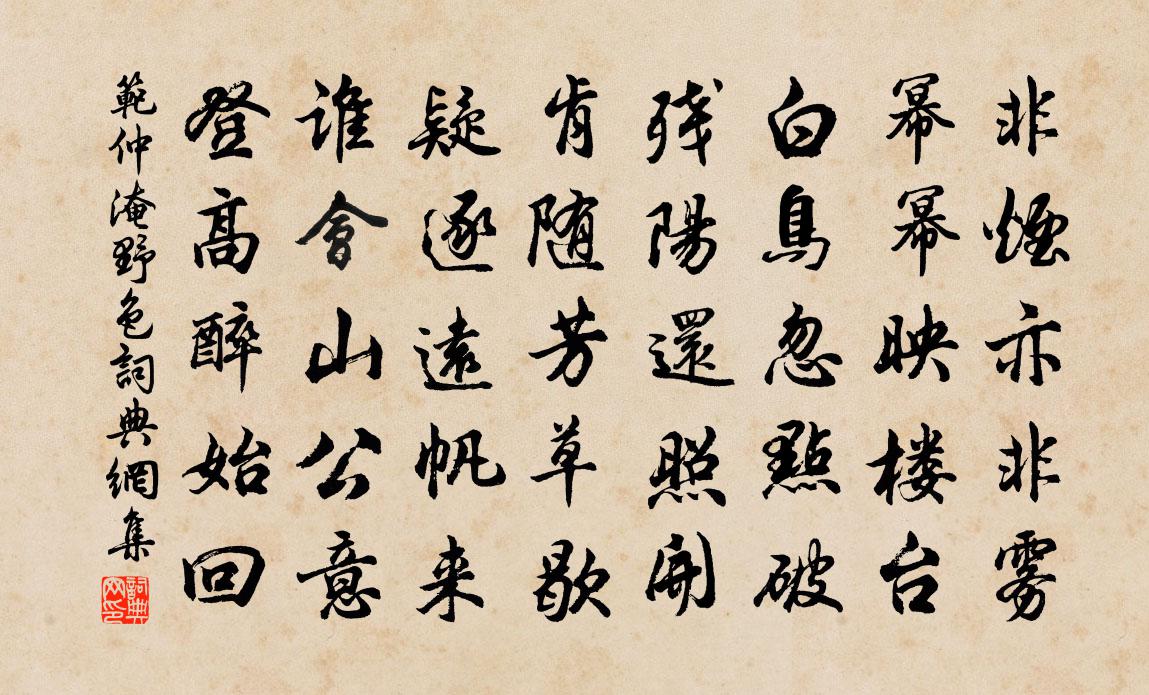 非煙亦非雾
幂幂映楼台
白鳥忽點破
残陽還照開
肯随芳草歇
疑逐遠帆来
谁會山公意
登高醉始回
範仲淹野色詞典網集
詞典网印